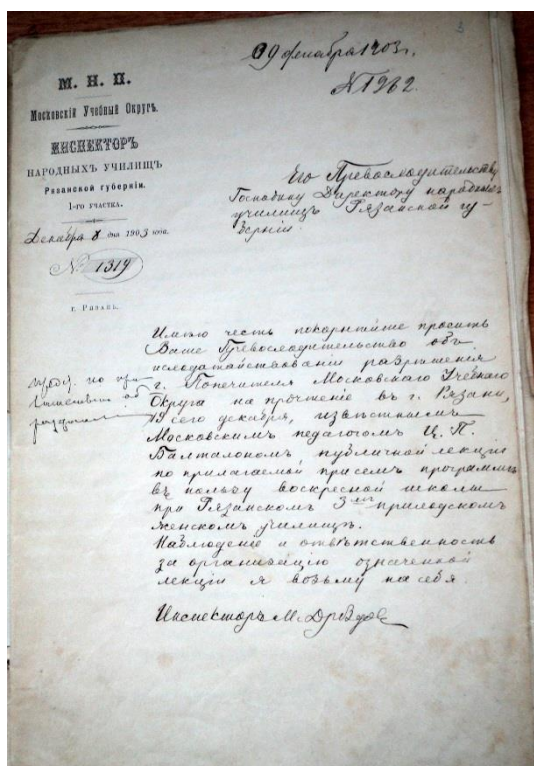 9 декабря 1903 г.
№ 1962.
М. Н. П.
Московскій Учебный Округъ.
ИНСПЕКТОРЪ
НАРОДНЫХЪ УЧИЛИЩЪ
Рязанской губерніи.
1-го участка.
Декабря 8 дня 1903 года.
№ 1319
г. Рязань.
Его Превосходительству
Господину Директору народныхъ
училищъ Рязанской гу-
берніи.
Имѣю честь покорнѣйше просить
Ваше Превосходительство объ
исходатайствованіи разрѣшенія
г. Попечителя Московскаго Учебнаго
Округа на прочтеніе въ г. Рязани,
19 сего декабря, извѣстнымъ
Московскимъ педагогомъ Ц. П.
Балталономъ, публичной лекціи
по прилагаемой при семъ программѣ
въ пользу воскресной школы
при Рязанскомъ 3-мъ приходскомъ
женскомъ училищѣ.
Наблюденіе и отвѣтственность
за организацію означенной
лекціи я возьму на себя.
Инспекторъ М. Дроздов